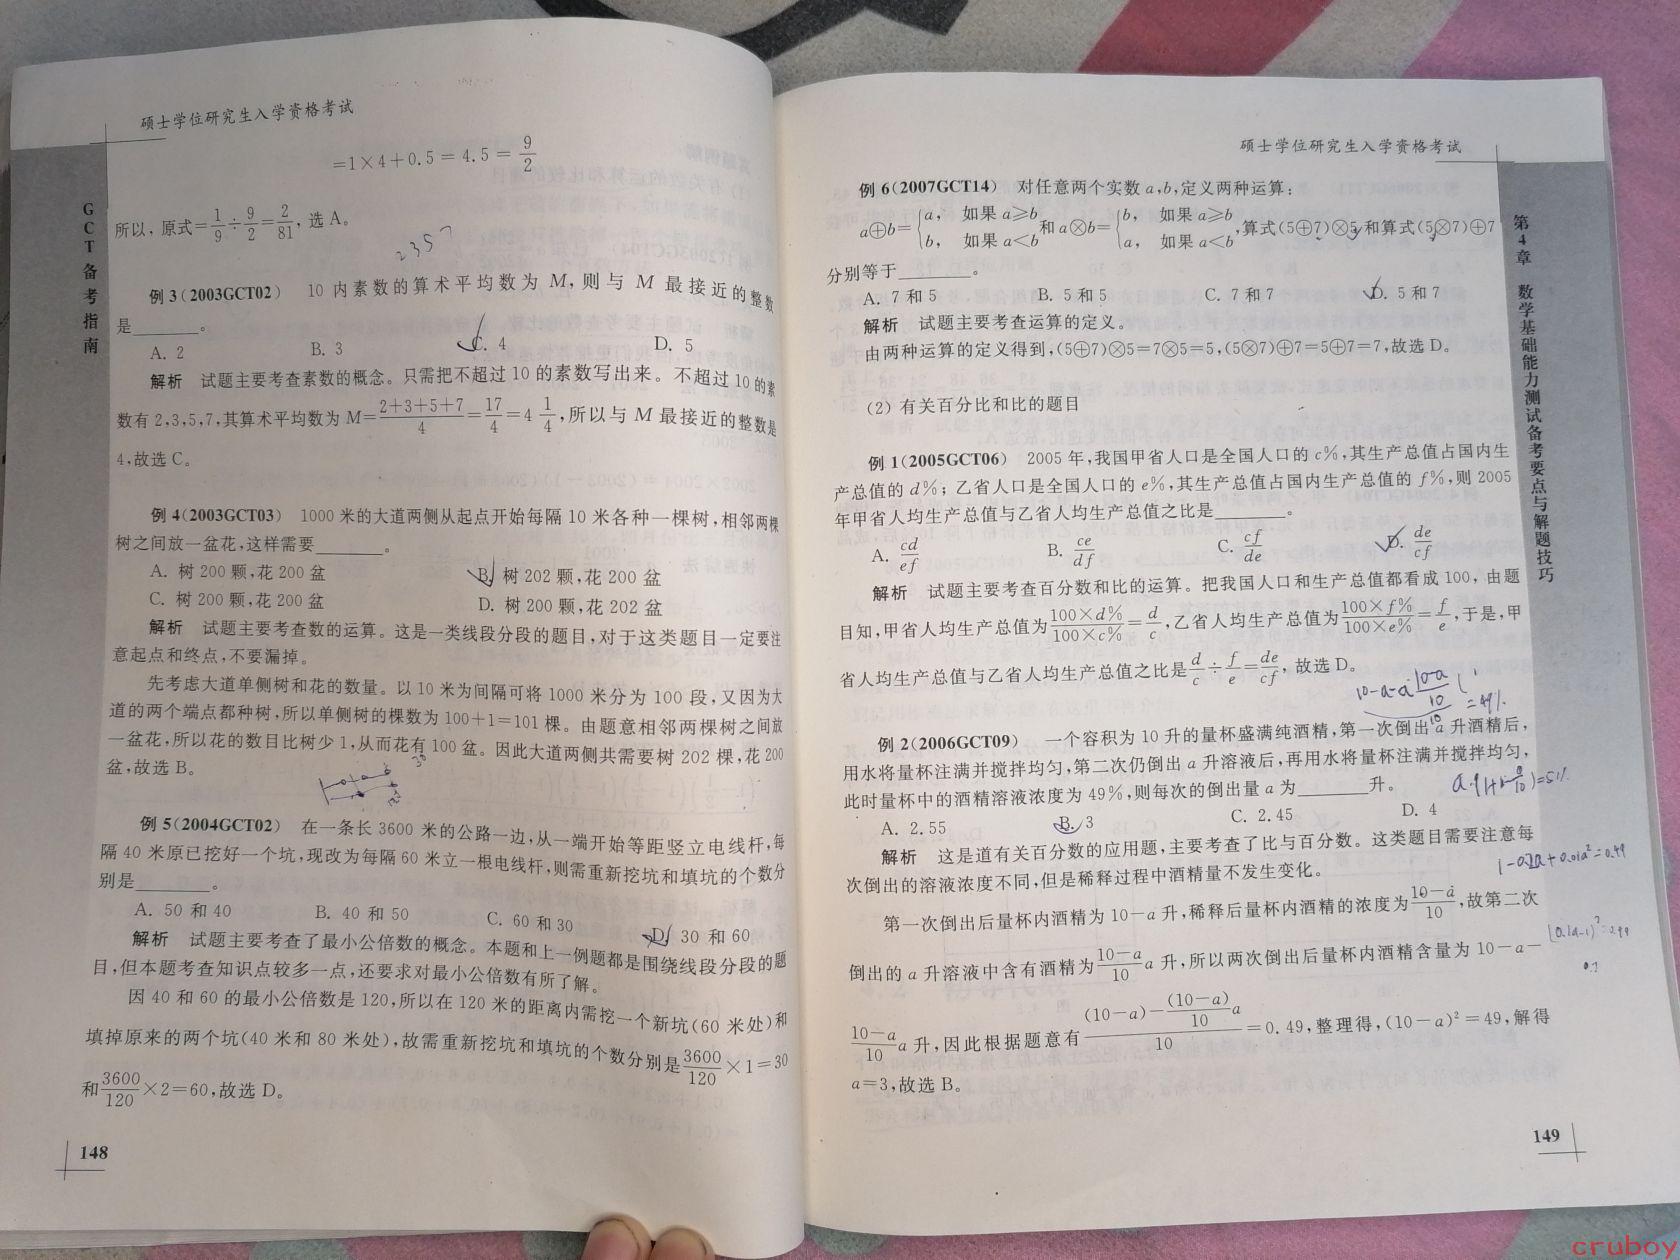 硕士学位研究生入学资格考试
=1×4+0.5=4.5=9/2
所以,原式=1/9÷9/2=2/81,选A。
2 3 5 7
例3(2003GCT02) 10内素数的算术平均数为M,则与M最接近的整数
是________。
A. 2 B. 3 C. 4 D. 5
解析 试题主要考查素数的概念。只需把不超过10的素数写出来。不超过10的素
数有2,3,5,7,其算术平均数为M=(2+3+5+7)/4=17/4=4 1/4,所以与M最接近的整数是
4,故选C。
例4(2003GCT03) 1000米的大道两侧从起点开始每隔10米各种一棵树,相邻两棵
树之间放一盆花,这样需要________。
A. 树200颗,花200盆 B. 树202颗,花200盆
C. 树200颗,花200盆 D. 树200颗,花202盆
解析 试题主要考查数的运算。这是一类线段分段的题目,对于这类题目一定要注
意起点和终点,不要漏掉。
先考虑大道单侧树和花的数量。以10米为间隔可将1000米分为100段,又因为大
道的两个端点都种树,所以单侧树的棵数为100+1=101棵。由题意相邻两棵树之间放
一盆花,所以花的数目比树少1,从而花有100盆。因此大道两侧共需要树202棵,花200
盆,故选B。
例5(2004GCT02) 在一条长3600米的公路一边,从一端开始等距竖立电线杆,每
隔40米原已挖好一个坑,现改为每隔60米立一根电线杆,则需重新挖坑和填坑的个数分
别是________。
A. 50和40 B. 40和50 C. 60和30 D. 30和60
解析 试题主要考查了最小公倍数的概念。本题和上一例题都是围绕线段分段的题
目,但本题考查知识点较多一点,还要求对最小公倍数有所了解。
因40和60的最小公倍数是120,所以在120米的距离内需挖一个新坑(60米处)和
填掉原来的两个坑(40米和80米处),故需重新挖坑和填坑的个数分别是3600/120×1=30
和3600/120×2=60,故选D。
148
GCT备考指南
硕士学位研究生入学资格考试
例6(2007GCT14) 对任意两个实数a,b,定义两种运算:
a⊕b={a, 如果a≥b b, 如果a<b 和a⊗b={b, 如果a≥b a, 如果a<b,算式(5⊕7)⊗5和算式(5⊗7)⊕7
分别等于________。
A. 7和5 B. 5和5 C. 7和7 D. 5和7
解析 试题主要考查运算的定义。
由两种运算的定义得到,(5⊕7)⊗5=7⊗5=5,(5⊗7)⊕7=5⊕7=7,故选D。
(2) 有关百分比和比的题目
例1(2005GCT06) 2005年,我国甲省人口是全国人口的c%,其生产总值占国内生
产总值的d%;乙省人口是全国人口的e%,其生产总值占国内生产总值的f%,则2005
年甲省人均生产总值与乙省人均生产总值之比是________。
A. cd/ef B. ce/df C. cf/de D. de/cf
解析 试题主要考查百分数和比的运算。把我国人口和生产总值都看成100,由题
目知,甲省人均生产总值为(100×d%)/(100×c%)=d/c,乙省人均生产总值为(100×f%)/(100×e%)=f/e,于是,甲
省人均生产总值与乙省人均生产总值之比是d/c÷f/e=de/cf,故选D。
例2(2006GCT09) 一个容积为10升的量杯盛满纯酒精,第一次倒出a升酒精后,
用水将量杯注满并搅拌均匀,第二次仍倒出a升溶液后,再用水将量杯注满并搅拌均匀,
此时量杯中的酒精溶液浓度为49%,则每次的倒出量a为________升。
A. 2.55 B. 3 C. 2.45 D. 4
解析 这是道有关百分数的应用题,主要考查了比与百分数。这类题目需要注意每
次倒出的溶液浓度不同,但是稀释过程中酒精量不发生变化。
1-0.2a+0.01a²=0.49
第一次倒出后量杯内酒精为10-a升,稀释后量杯内酒精的浓度为(10-a)/10,故第二次
倒出的a升溶液中含有酒精为(10-a)/10 a升,所以两次倒出后量杯内酒精含量为10-a-
(10-a)/10 a升,因此根据题意有((10-a)-(10-a)/10 a)/10=0.49,整理得,(10-a)²=49,解得
a=3,故选B。
149
第4章 数学基础能力测试备考要点与解题技巧
cruboy